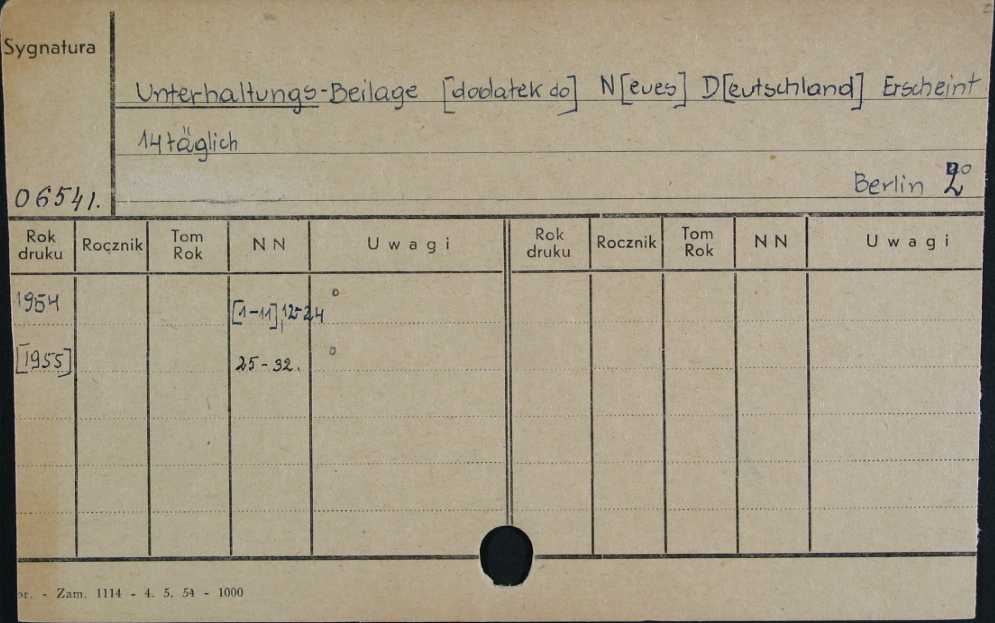 Sygnatura
Unterhaltungs-Beilage [dodatek do] N[eues] D[eutschland] Erscheint
14täglich
Berlin 2°
06541.
Rok druku Rocznik Tom Rok NN Uwagi Rok druku Rocznik Tom Rok NN Uwagi
1954 [1-11],12-24 °
[1955] 25-32. °
- Zam. 1114 - 4. 5. 54 - 1000